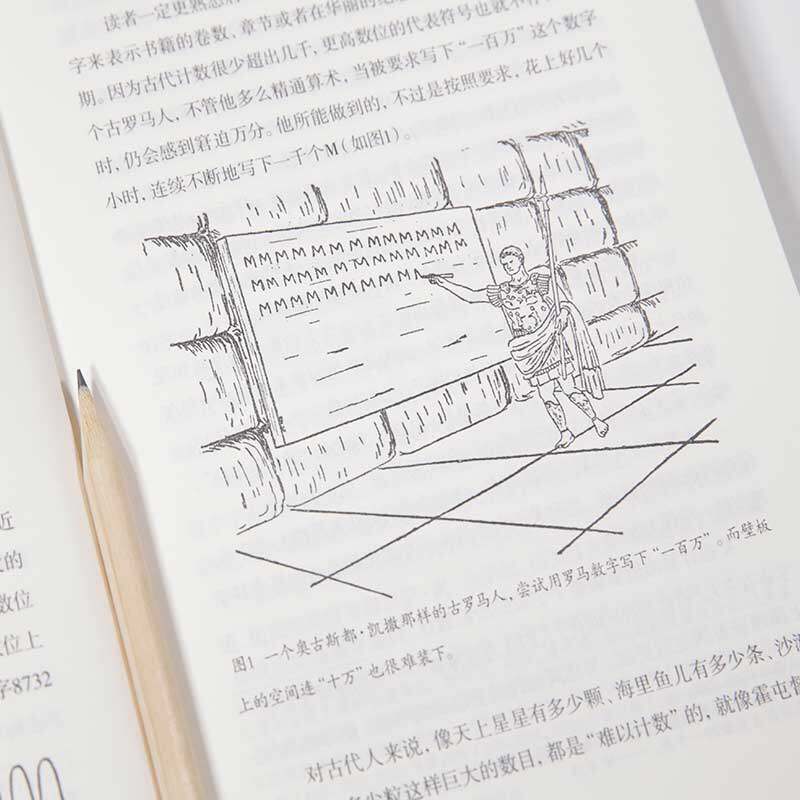 读者一定更熟悉
字来表示书籍的卷数、章节或者在华丽的
期。因为古代计数很少超出几千，更高数位的代表符号也就不
个古罗马人，不管他多么精通算术，当被要求写下“一百万”这个数字
时，仍会感到窘迫万分。他所能做到的，不过是按照要求，花上好几个
小时，连续不断地写下一千个M（如图1）。
MMMMMMMMMMMMM
MMMMMMMMMMMMM
MMMMMMMMMM
图1 一个奥古斯都·凯撒那样的古罗马人，尝试用罗马数字写下“一百万”。而壁板
上的空间连“十万”也很难装下。
对古代人来说，像天上星星有多少颗、海里鱼儿有多少条、沙
多少粒这样巨大的数目，都是“难以计数”的，就像霍屯督
近
的
数位
位上
字8732
00